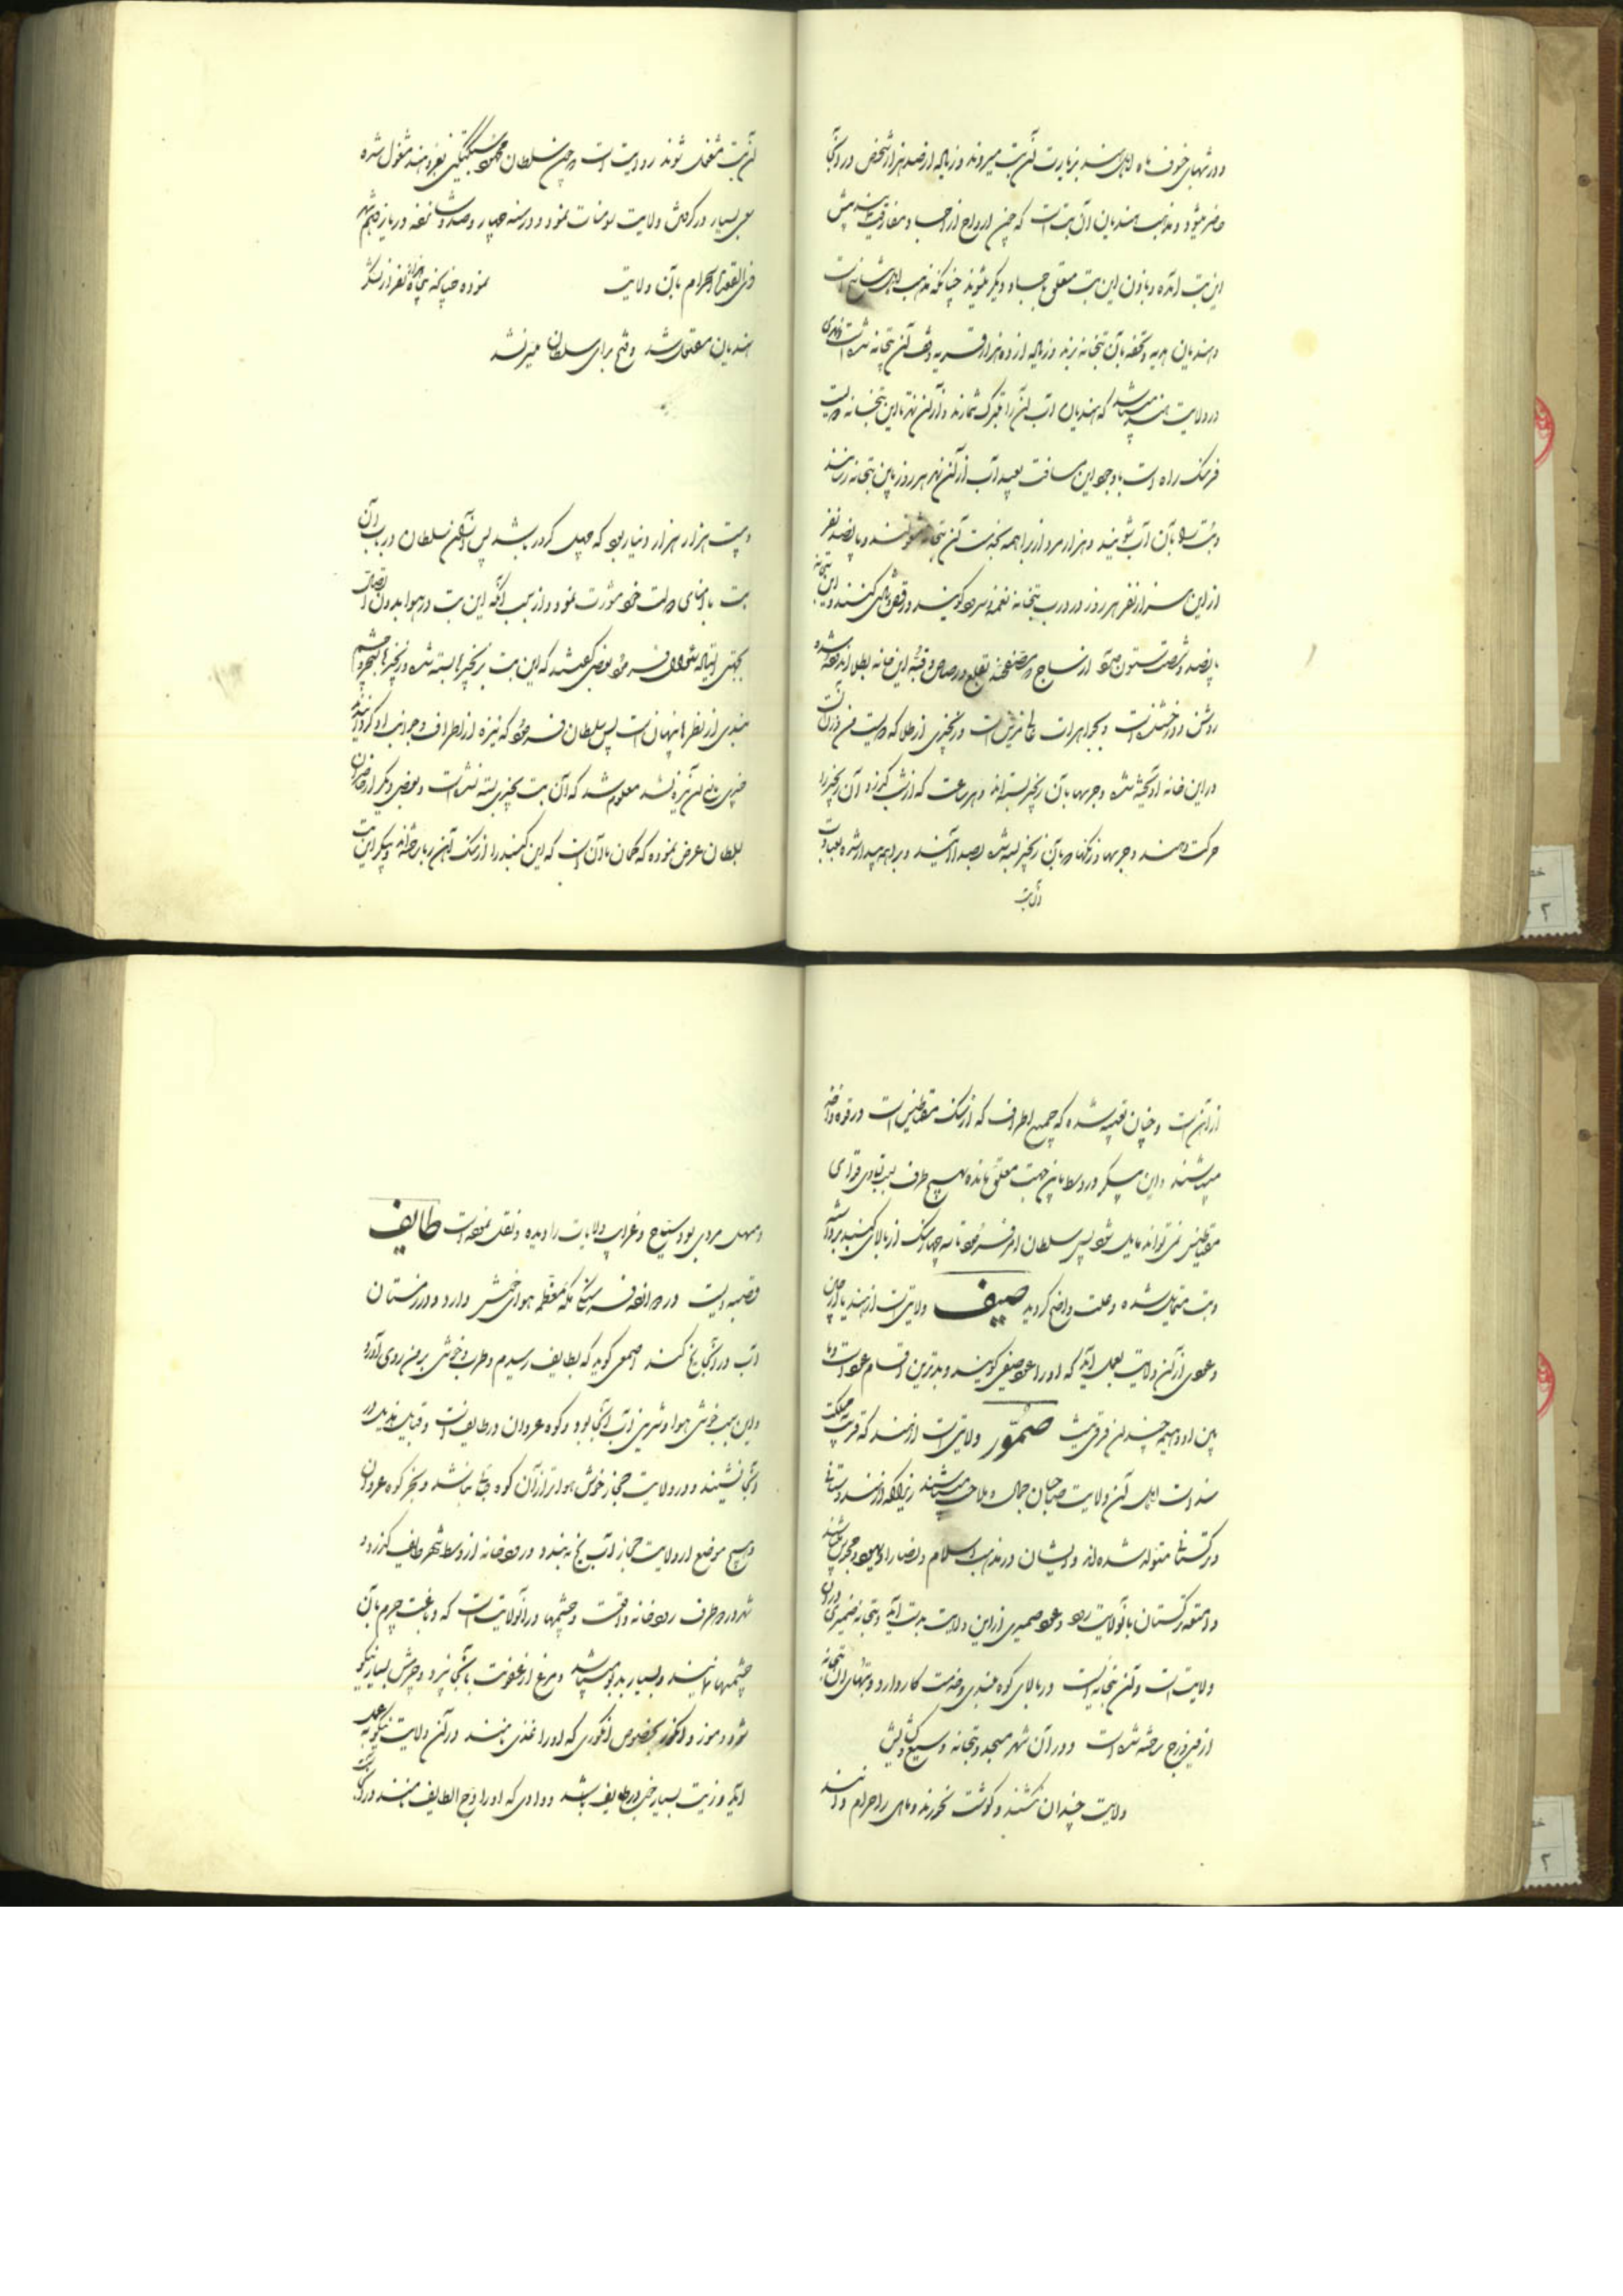 و در شبهای خسوف ماه اهل هند بزیارت آن بت میروند و زیاده از صد هزار شخص در آنجا
حاضر میشود و مذهب هندیان آن است که چون ارواح از اجساد مفارقت نمایند پیش
این بت آمده و باذن این بت متعلق باجساد دیگر شوند چنانکه مذهب اهل تناسخ است
و هندیان هدیه و تحفه بآن بتخانه برند و زیاده از ده هزار قریه وقف آن بتخانه شده است و نهری
در ولایت هند میباشد که هندیان آب آن را متبرک شمارند و از آن نهر تا این بتخانه دویست
فرسنگ راه است با وجود این مسافت بعیده آب از آن نهر هر روز باین بتخانه رسانند
و بت را بآن آب شویند و هزار مرد از براهمه بخدمت آن بتخانه مشغولند و پانصد نفر
از این هزار نفر هر روز در درب بتخانه نغمه و سرود گویند و رقص کنند و این بتخانه
پانصد و شصت ستون دارد از ساج و قبه این خانه بطلا اندوده شده
روشن و درخشنده است و بجواهرات مزین است و زنجیری از طلا که دویست من وزن آنست
در این خانه آویخته شده و جرسها بآن زنجیر بسته اند و هر ساعت که از شب گذرد آن زنجیر را
حرکت دهند و جرسها و زنگها که بآن زنجیر بسته شده بصدا آیند و براهمه بیدار شده بعبادت
آن بت
آن بت مشغول شوند روایت است که چون سلطان محمود سبکتگین بغزو هند مشغول شده
سعی بسیار در گرفتن ولایت سومنات نمود و در سنه چهار صد و شانزده در یازدهم شهر
ذی القعدة الحرام بآن ولایت نموده چنانکه پنجاه هزار نفر از لشکر
هندیان مقتول شد و فتح برای سلطان میسر شد
دویست هزار هزار دینار بود که چهل کرور باشد پس از آن سلطان در باب آن
بت با امنای دولت خود مشورت نمود و از سبب آنکه این بت در هوا بدون اتصال
بجائی ایستاده سئوال فرمود بعضی گفتند که این بت بزنجیرها بسته شده و زنجیرها بسحر و چشم
بندی از نظرها پنهان است پس سلطان فرمود که نیزه از اطراف و جوانب او گردانیدند
چیزی مانع آن نیزه نشد معلوم شد که آن بت بچیزی بسته نشده است و بعضی دیگر از حاضران
بسلطان عرض نموده که گمان ما آن است که این گنبد را از سنگ آهن ربا ساخته اند و پیکر این بت
از آهن است و چنان تعبیه شده که جمیع اطراف که از سنگ مقناطیس است در قوه واحد
میباشند و این پیکر در وسط باین جهت معلق مانده بهیچ طرف بسبب تساوی قوای
مقناطیس نمی تواند مایل شود پس سلطان امر فرمود تا سه چهار سنگ از بالای گنبد برداشته
و بت متمایل شده و علت واضح گردید صیف ولایتی است از هند یا از چین
و عودی از آن ولایت بعمل آید که او را عود صیفی گویند و بدترین اقسام عود است و ما
بین او و هیمه چندان فرقی نیست صمّور ولایتی است از هند که قریب مملکت
سند است اهل آن ولایت صاحبان جمال و ملاحت میباشند زیرا که از هندوستانی
و ترکستانی متولد شده اند و ایشان در مذهب اسلام و نصارا و یهود و مجوس باشند
و امتعه ترکستان بآنولایت رود و عود صمری از این ولایت بدست آید و بتخانه صمری در آن
ولایت است و آن بتخانه ایست در بالای کوه بلندی و خدمت کار دارد و بتهای آن بتخانه
از فیروزج ساخته شده است و در آن شهر مسجد و بتخانه وسیع
ولایت چندان نکشند و گوشت نخورند و ماهی را حرام دانند
مردی بود سیاح و غرایب ولایات را دیده و نقل نموده است طایف
قصبه ایست در دوازده فرسنگی مکه معظمه هوای خوش دارد و در زمستان
آب در آنجا یخ کند اصمعی گوید که بطایف رسیدم و طرب و خوشی بر من روی آورد
و این بسبب خوشی هوا و شیرینی آب آنجا بود و کوه عروان در طایف است و قبایل هذیل در
آنجا نشینند و در ولایت حجاز خوش هواتر از آن کوه جائی نباشد و بجز کوه عروان
در هیچ موضع از ولایت حجاز آب یخ نبندد و رودخانه از وسط شهر طایف گذرد و
شهر در دو طرف رودخانه واقعست و چشمها در آنولایت است که دباغت چرم بآن
چشمها نمایند و بسیار بدبو میباشد و مرغ از عفونت بآنجا نپرد و چرمش بسیار نیکو
شود و موز و انگور بخصوص انگوری که او را نامند در آن ولایت نیکو بعمل
آید و زبیب بسیار خوب در طایف باشد و وادی که او را وج الطایف نامند در